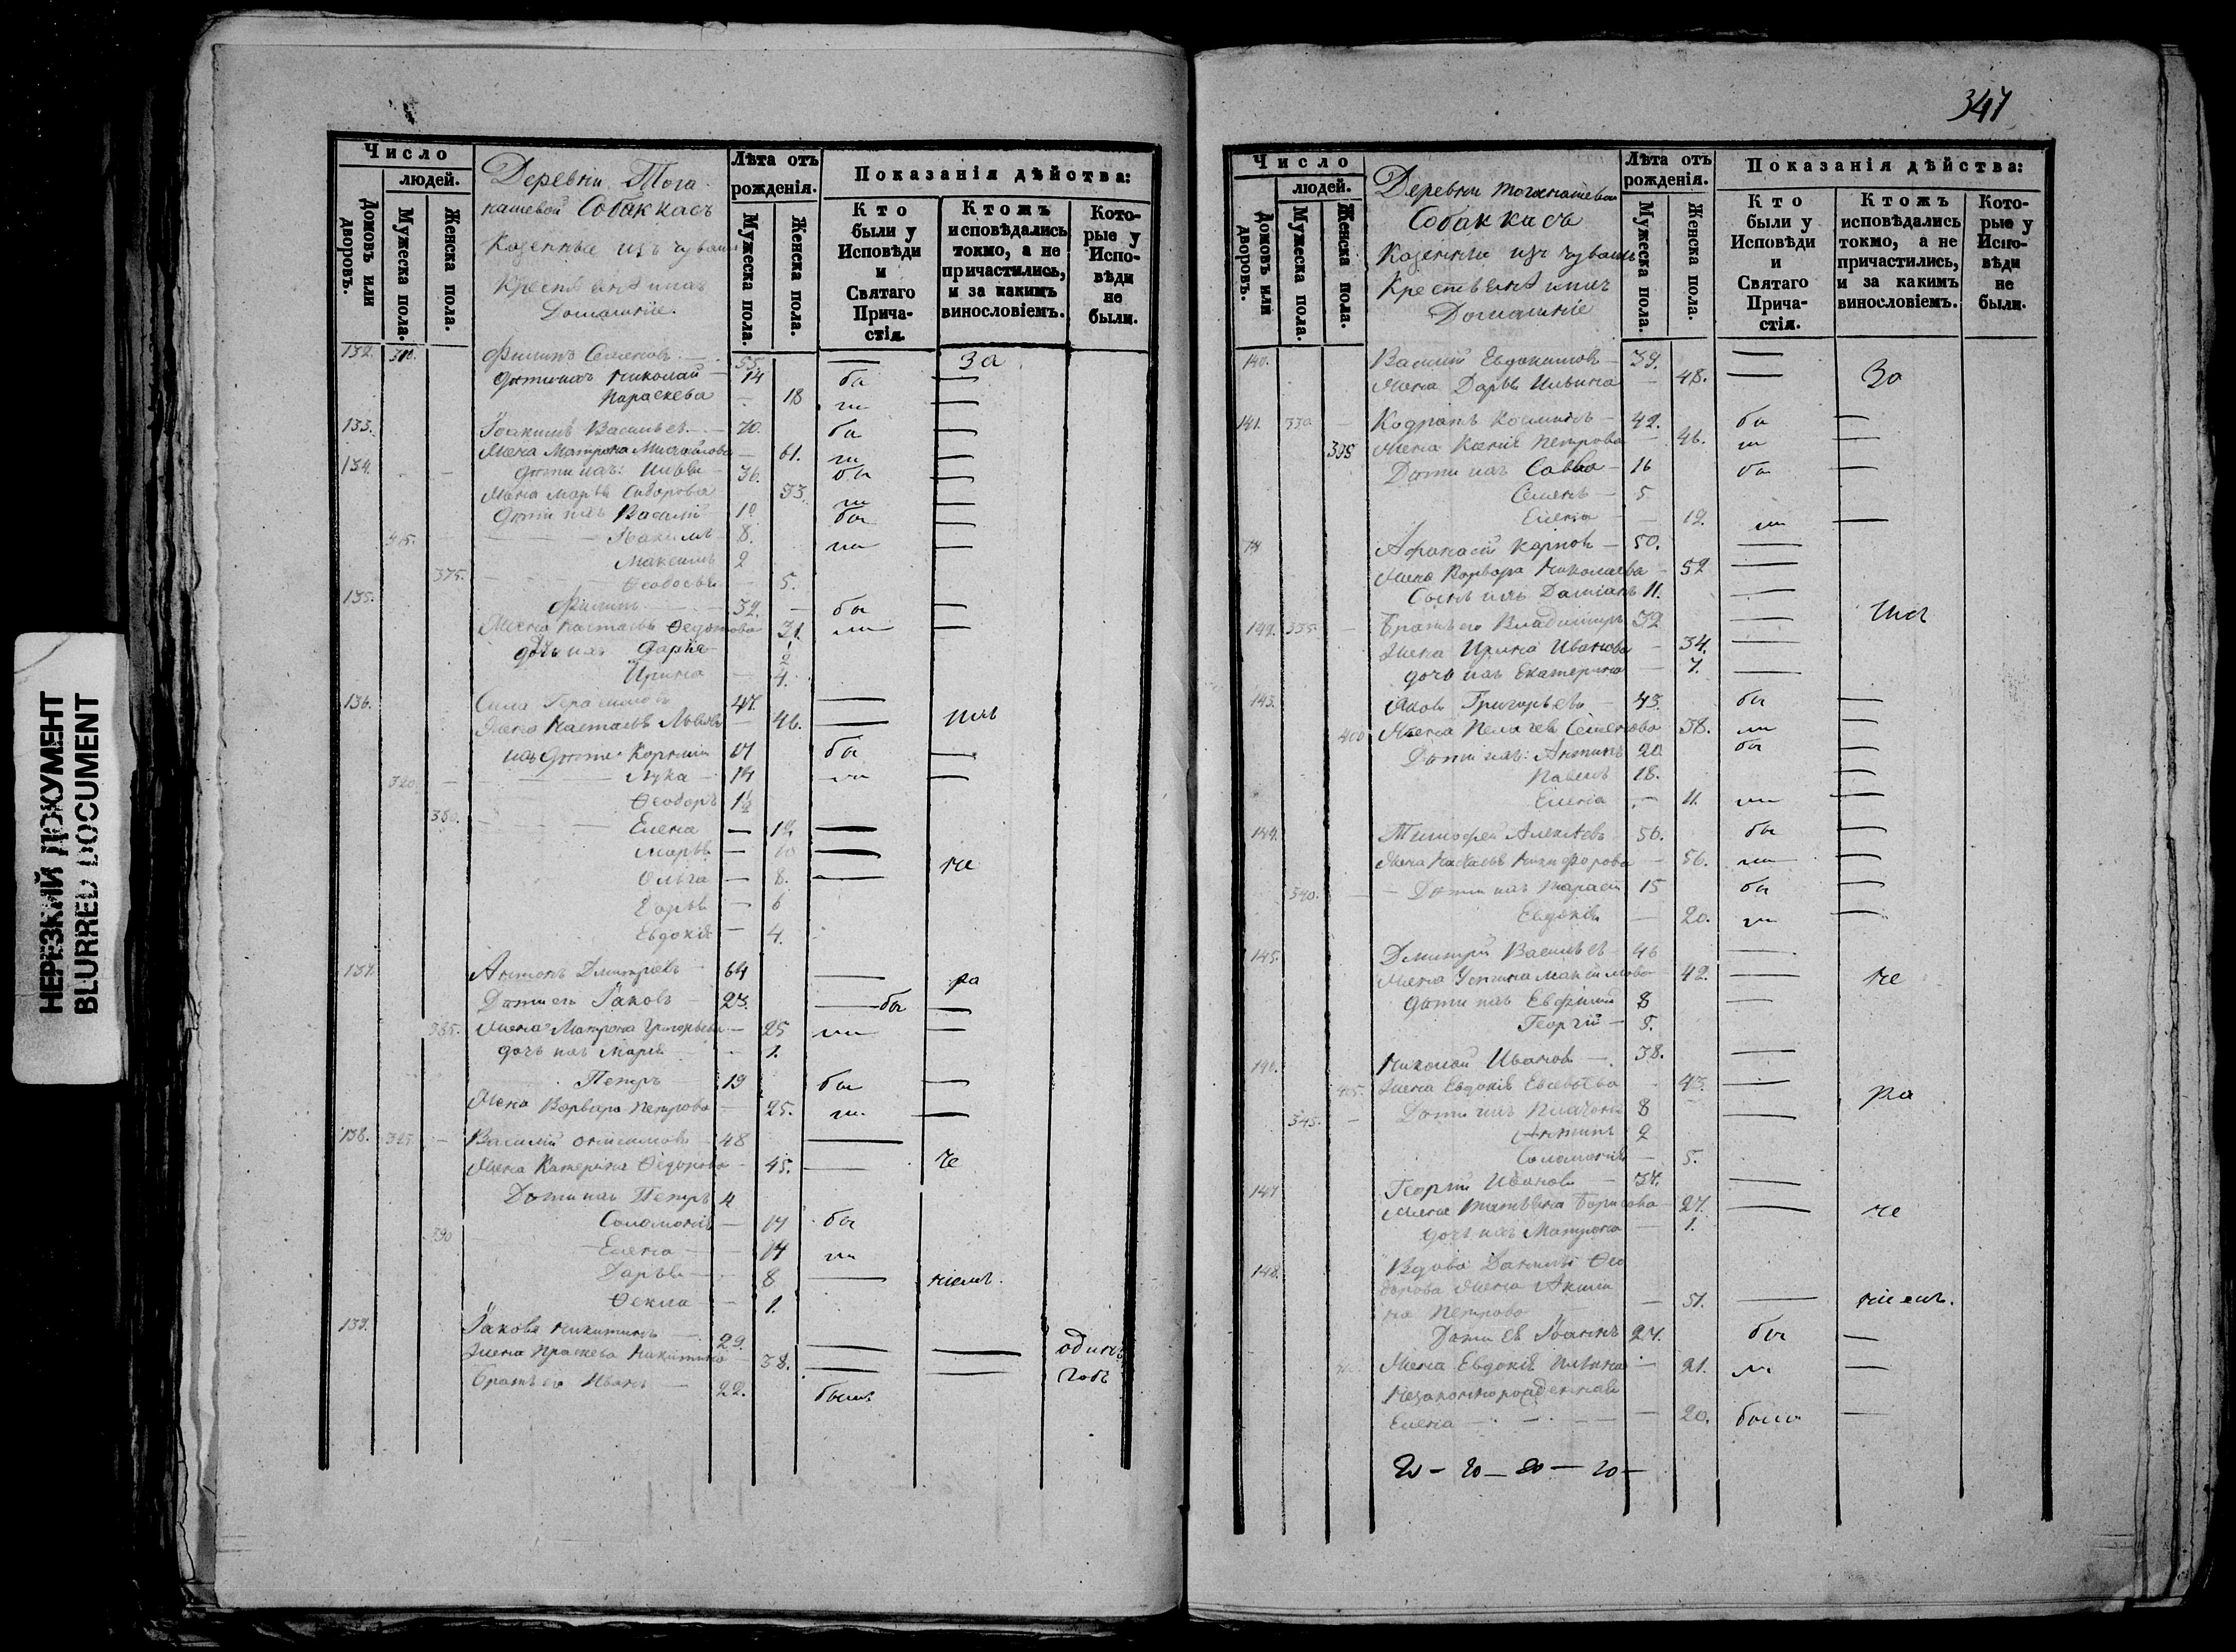 НЕРЕЗКИЙ ДОКУМЕНТ
BLURRED DOCUMENT
Число
людей.
Домовъ или дворовъ.
Мужеска пола.
Женска пола.
Деревни Тога-
кашевой Собаккасъ
Казенные изъ чувашъ
Домашніе.
Лѣта отъ рожденія.
Мужеска пола.
Женска пола.
Показанія дѣйства:
Кто были у Исповѣди и Святаго Прича-стія.
Ктожъ исповѣдались токмо, а не причастились, и за какимъ винословіемъ.
Кото-рые у Испо-вѣди не были.
132. Филипъ Семеновъ — 55. — за
Николай — 14 бы —
Параскева — 18 ли —
133. Іоакимъ Васильевъ — 70. бы —
Жена Матрона Михайлова — 61. ли —
134. 36. бы —
Жена Марья Сидорова 33. ли —
Дѣти ихъ Василій 10 бы —
8. ли —
Максимъ 2
375. Ѳеодосья 5.
135. Филипъ — 32. — бы —
Жена Настасья Ѳедотова 31. ли —
дочь ихъ Дарья
Ирина — 4.
136. Сила Герасимовъ 47. —
Жена Настасья — 46. — ихъ
Лука — 14 ли —
320. Ѳеодоръ 1½
380. Елена — 12 —
Марья — 10 —
Ольга — 8. — не
Дарья — 6
Евдокія — 4.
137. Антонъ Дмитріевъ — 64 — ра
Дѣти его Іаковъ — 23. — бы —
385. Жена Матрона Григорьева — 25 ли —
дочь ихъ Марія — 1.
Петръ — 19 бы —
Жена Варвара Петрова — 25. ли —
138. 325 — Василій — 48 —
Жена Катерина Ѳедорова — 45. — че
Дѣти ихъ Петръ 4
Соломонія — 17 бы
390 Елена — 14 ли
Дарья — 8 — ніемъ.
Ѳекла — 1.
139. Іаковъ Никитинъ — 29. — — одинъ
Жена Праскева Никитина 38. — — годъ
Братъ его Иванъ — 22. былъ
347
Число
людей.
Домовъ или дворовъ.
Мужеска пола.
Женска пола.
Деревни Тогакашевой
Собаккасъ
Казенные изъ чувашъ
Домашніе
Лѣта отъ рожденія.
Мужеска пола.
Женска пола.
Показанія дѣйства:
Кто были у Исповѣди и Святаго Прича-стія.
Ктожъ исповѣдались токмо, а не причастились, и за какимъ винословіемъ.
Кото-рые у Испо-вѣди не были.
140. Василій Евдокимовъ — 39. —
Жена Дарья Ильина — 48. — За
141. 330 — Кодратъ Косминъ — 42. бы —
395 Жена Ксенія Петрова — 46. ли —
Дѣти ихъ Савва — 16 бы —
Семенъ — 5
Елена — 12. ли —
Афанасій Карповъ — 50. —
Жена Варвара Николаева — 52 —
Сынъ ихъ Даміанъ 11. —
142. 335. — Братъ его Владиміръ 32 — ихъ
Жена Ирина Иванова — 34. —
дочь ихъ Екатерина — 7. —
143. Яковъ Григорьевъ — 43. бы —
400 Жена Пелагея Семенова 38. ли —
Дѣти ихъ: Антипъ 20 бы
Павелъ 18. —
Елена — 11. ли —
144. Тимофей Алексѣевъ 56. бы —
Жена Наталья Никифорова — 56. ли —
340. — Дѣти ихъ Тарасій 15 бы —
Евдокія — 20. ли —
145. Дмитрій Васильевъ 46 —
Жена Устина Максимова 42. — не
Дѣти ихъ Евфимій 8 —
Георгій — 5.
146. Николай Ивановъ — 38. —
405. Жена Евдокія 43. — ра
345. — Дѣти ихъ Платонъ 8 —
Антипъ 2
Соломонія — 5.
147 Георгій Ивановъ — 37. —
Жена Татьяна Борисова 27. — че
дочь ихъ Матрона — 1.
148. Вдова Ѳео
дорова жена Акули
на Петрова — 51. — ніемъ.
Дѣти ея Іоаннъ 27. бы —
Жена Евдокія Ильина — 21. ли —
Незаконнорожденная
Елена — 20. была —
20 — 20 — 20 — 20 —